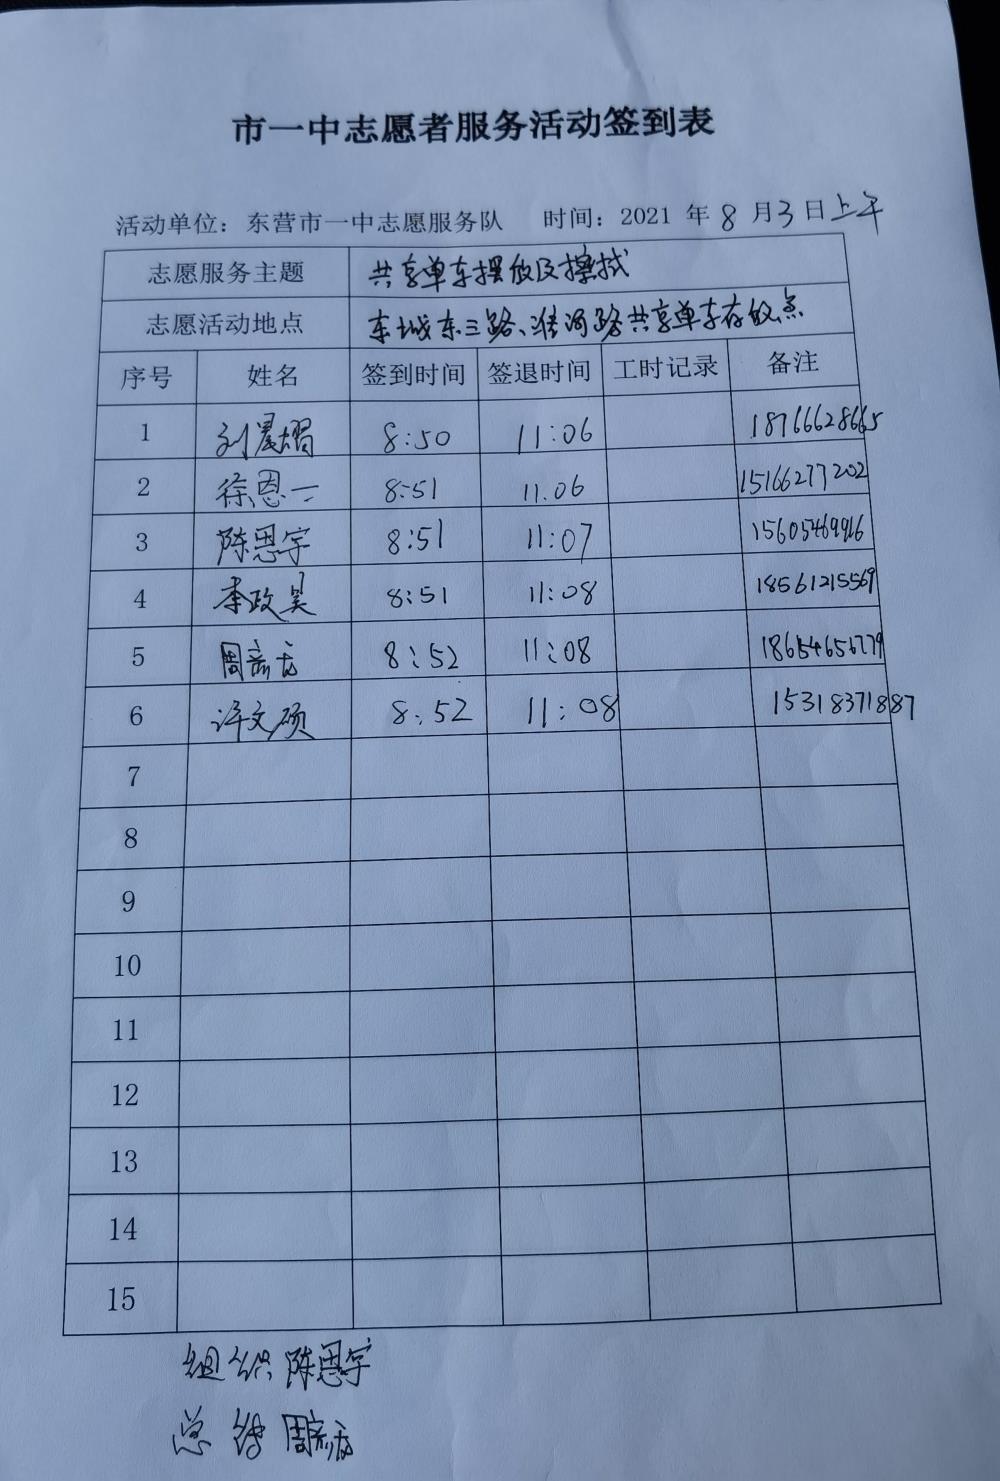 市一中志愿者服务活动签到表
活动单位：东营市一中志愿服务队 时间：2021 年 8 月 3 日上午
志愿服务主题 共享单车摆放及擦拭
志愿活动地点 东城东三路、淮河路共享单车存放点
序号 姓名 签到时间 签退时间 工时记录 备注
1 刘晨熠 8:50 11:06 18766628665
2 徐恩一 8:51 11.06 15166277202
3 陈恩宇 8:51 11:07 15605469916
4 李政昊 8:51 11:08 18561215569
5 周 8:52 11:08 18654656779
6 许文硕 8:52 11:08 15318371887
7
8
9
10
11
12
13
14
15
组织 陈恩宇
总结 周